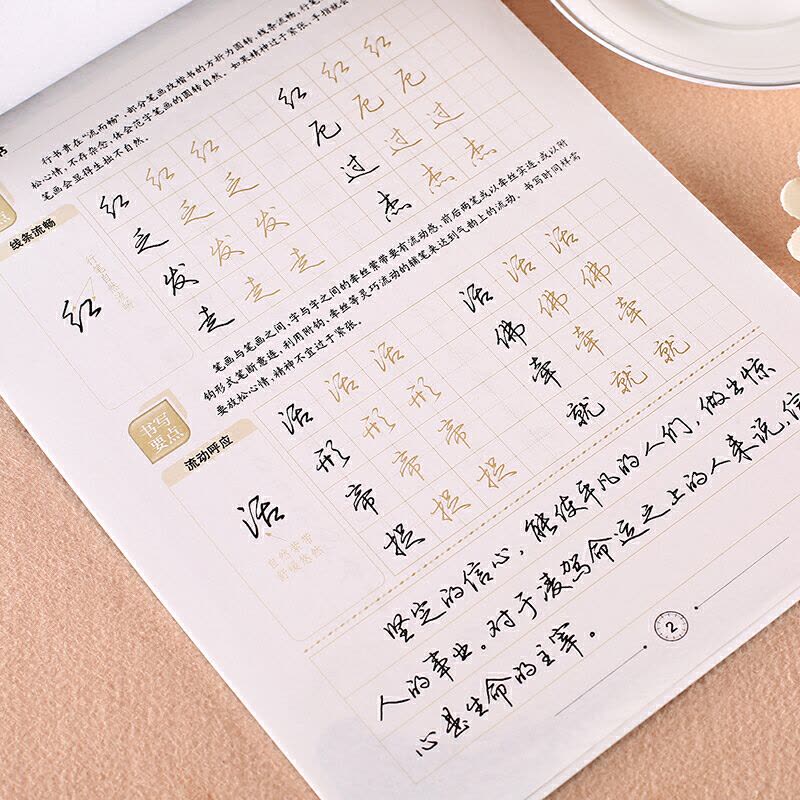 行书贵在“流而畅”，部分笔画改楷书的方折为圆转，线条流畅，行笔
松心情，不存杂念，体会范字笔画的圆转自然。如果精神过于紧张，手指就会
笔画会显得生拙不自然。
线条流畅
红
行笔自然流畅
红 红 红 红 红 红
乏 乏 乏 厄 厄 厄
发 发 发 过 过 过
走 走 走 杰 杰 杰
笔画与笔画之间，字与字之间的牵丝萦带要有流动感，前后两笔或以牵丝实连，或以附
钩形式笔断意连，利用附钩、牵丝等灵巧流动的辅笔来达到气韵上的流动。书写时同样需
要放松心情，精神不宜过于紧张。
书写
要点
流动呼应
活
自然萦带
活 活 活 活 活 活
形 形 形 佛 佛 佛
帝 帝 帝 牵 牵 牵
损 损 损 就 就 就
坚定的信心，能使平凡的人们，做出惊
人的事业。对于凌驾命运之上的人来说，信
心是生命的主宰。
2